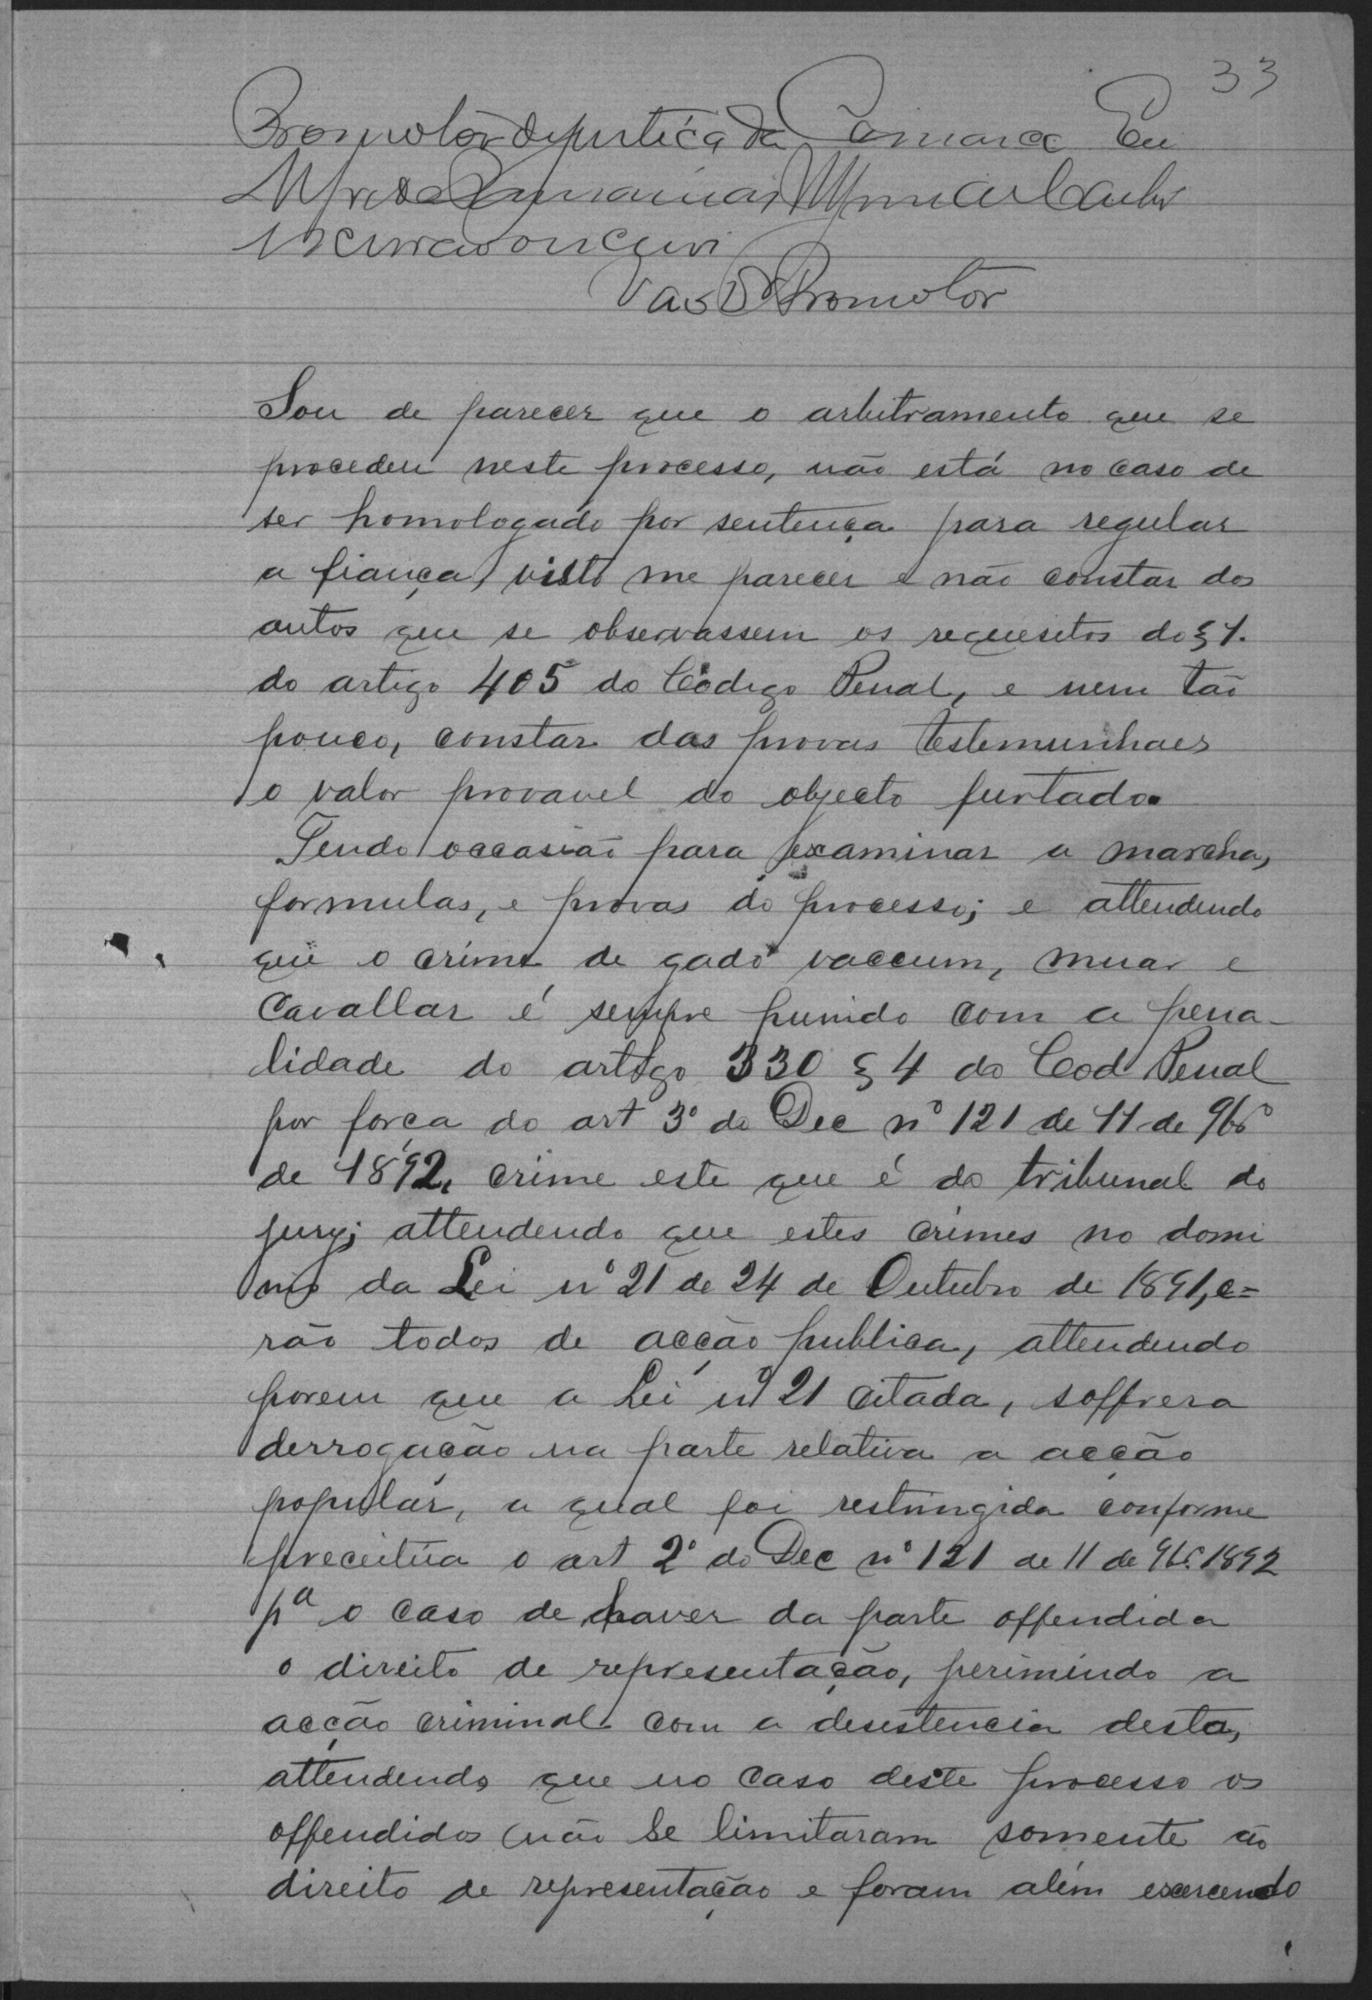 33
Promotor de Justiça da Comarca Eu
Escrivão o escrevi
Vao Dr Promotor
Sou de parecer que o arbitramento que se
procedeu neste processo, não está no caso de
ser homologado por sentença para regular
a fiança, visto me parecer e não constar dos
autos que se observassem os requesitos do § 1.
do artigo 405 do Codigo Penal, e nem tão
pouco, constar das provas testemunhaes
o valor provavel do objecto furtado.
Tendo occasião para examinar a marcha,
formulas, e provas do processo; e attendendo
que o crime de gado vaccum, muar e
cavallar é sempre punido com a pena-
lidade do artigo 330 § 4 do Cod Penal
por força do art 3º do Dec nº 121 de 11 de 9bro
de 1892, crime este que é do tribunal do
jury; attendendo que estes crimes no domi
nio da Lei nº 21 de 24 de Outubro de 1891, e=
rão todos de acção publica, attendendo
porem que a Lei nº 21 citada, soffrera
derrogação na parte relativa a acção
popular, a qual foi restringida conforme
preceitúa o art 2º do Dec nº 121 de 11 de 9br. 1892
pª o caso de haver da parte offendida
o direito de representação, perimindo a
acção criminal com a desestencia desta,
attendendo que no caso deste processo os
offendidos não se limitaram somente ao
direito de representação e foram além exercendo